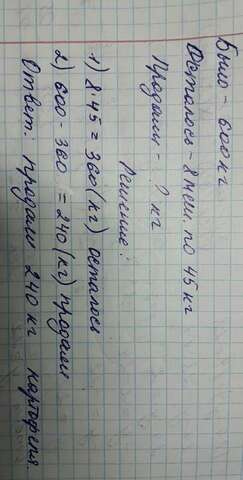 Было - 600 кг
Осталось - 8 меш. по 45 кг
Продали - ? кг
Решение:
1) 8·45 = 360 (кг) осталось
2) 600 - 360 = 240 (кг) продали
Ответ: продали 240 кг картофеля.